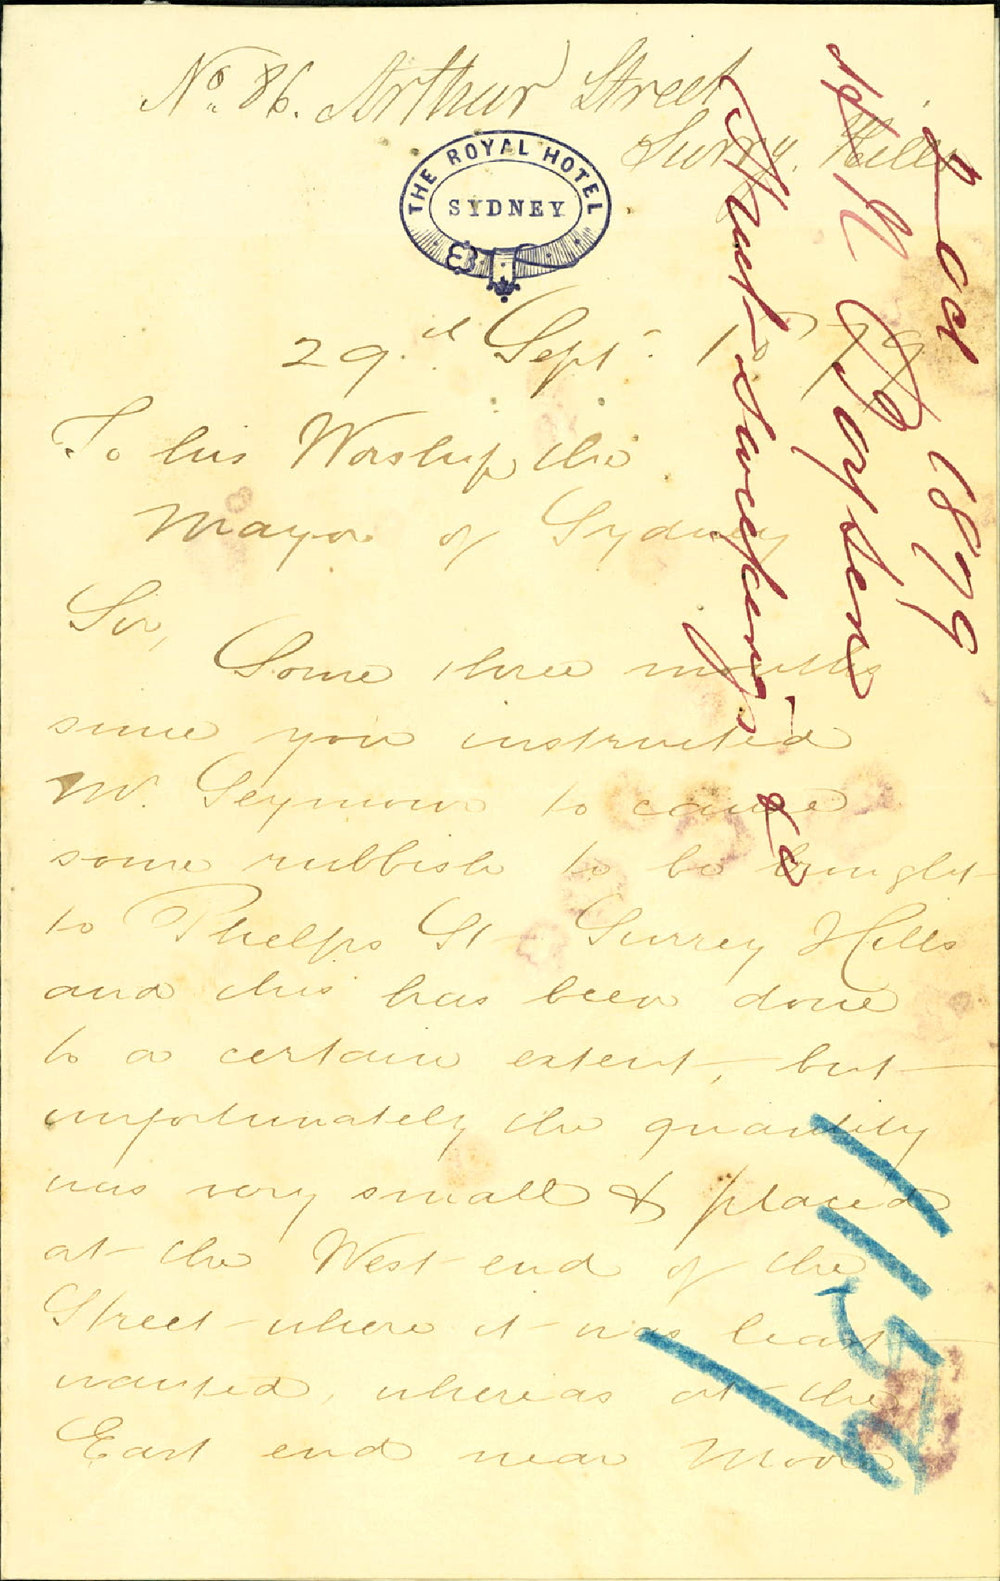 No. 86. Arthur Street
Surry. Hills
THE ROYAL HOTEL
SYDNEY
29.d Sept. 1879
To his Worship the
Mayor of Sydney
Sir,
Some three months
since you instructed
Mr. Seymour to cause
some rubbish to be brought
to Phelps St Surrey Hills
and this has been done
to a certain extent, but
unfortunately the quantity
was very small & placed
at the West end of the
Street where it was least
wanted, whereas at the
East end near Moore
2 Oct 1879
Street Sweepings